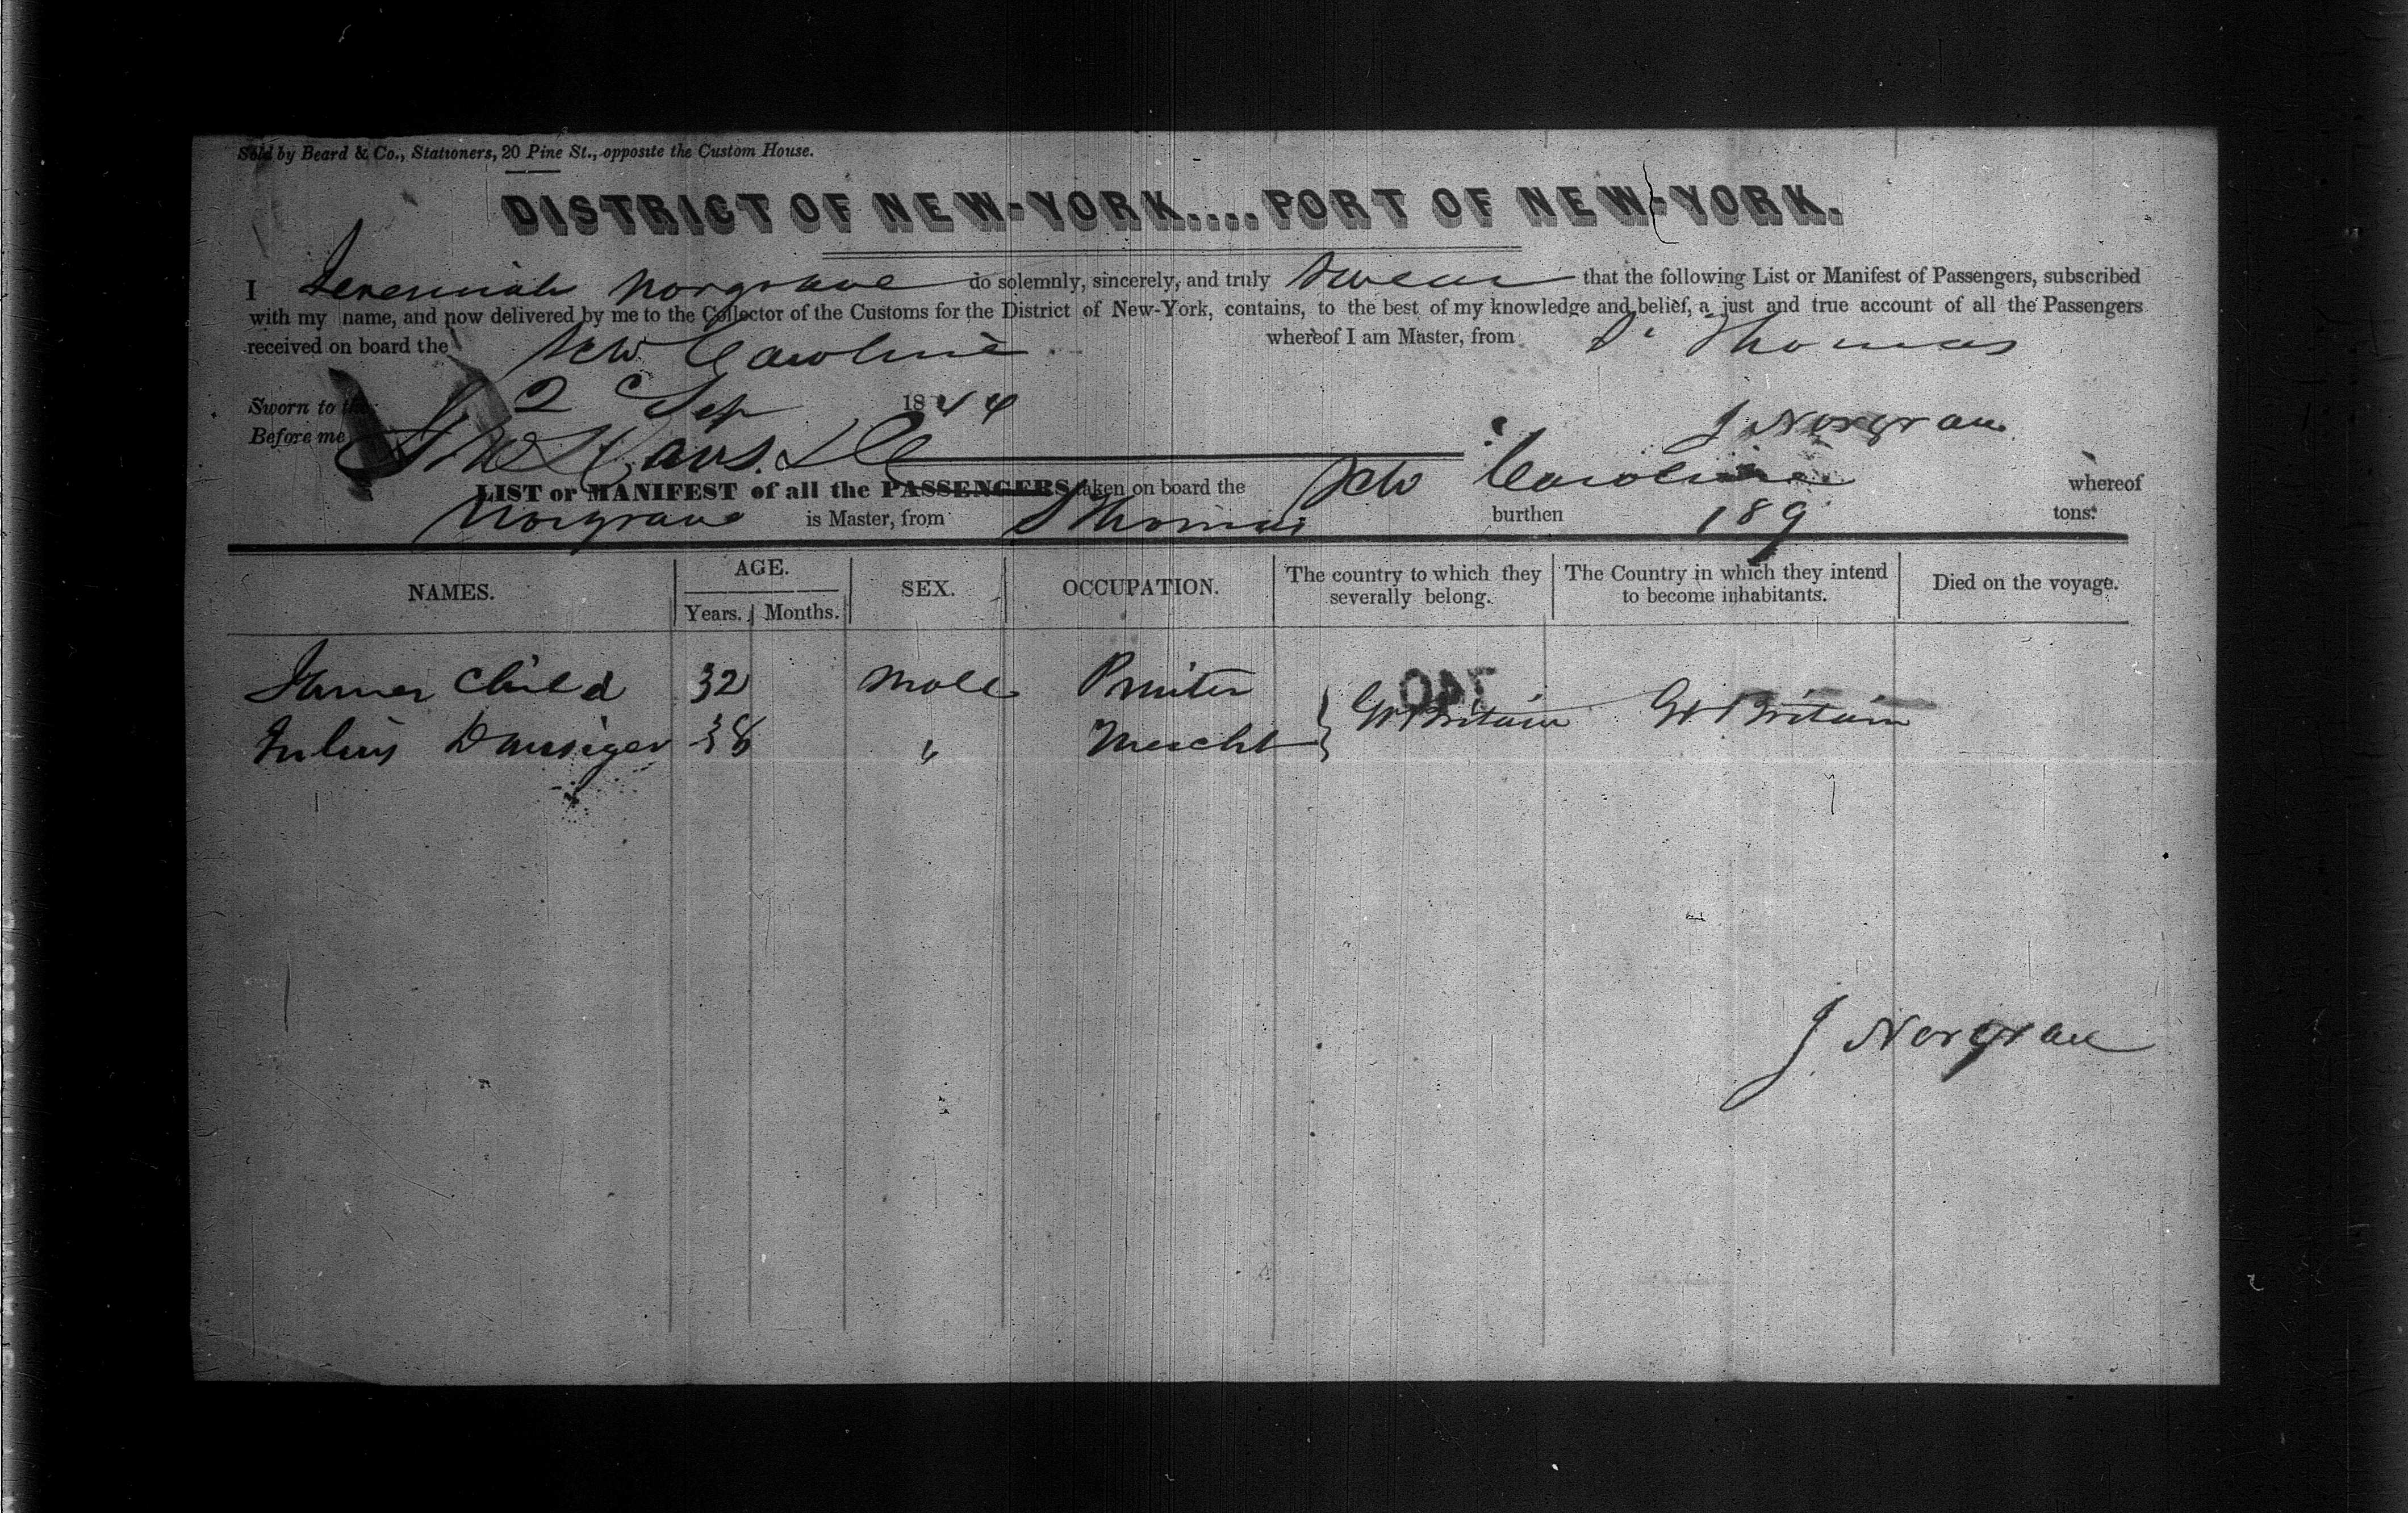 Sold by Beard & Co., Stationers, 20 Pine St., opposite the Custom House.
DISTRICT OF NEW-YORK....PORT OF NEW-YORK.
I Jeremiah Norgrave do solemnly, sincerely, and truly Swear that the following List or Manifest of Passengers, subscribed
with my name, and now delivered by me to the Collector of the Customs for the District of New-York, contains, to the best of my knowledge and belief, a just and true account of all the Passengers
received on board the Sch Caroline whereof I am Master, from St Thomas
Sworn to the 2 Sep 1844
J Norgrave
Before me
LIST or MANIFEST of all the PASSENGERS taken on board the Sch Caroline whereof
Norgrave is Master, from St Thomas burthen 189 tons.
NAMES. AGE. SEX. OCCUPATION. The country to which they severally belong. The Country in which they intend to become inhabitants. Died on the voyage.
Years. Months.
James Child 32 Male Printer
Gt Britain Gt Britain
Julius Dansiger 38 " Mercht
740
J Norgrave